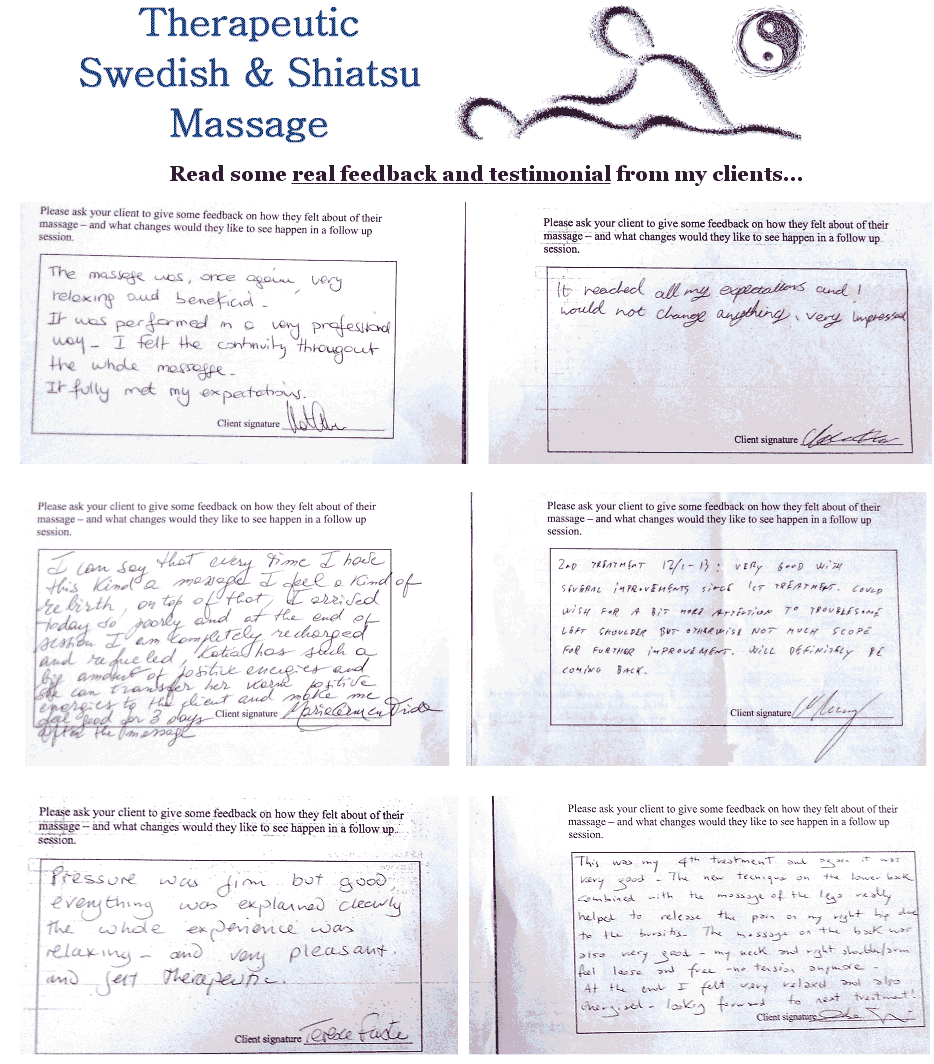 Therapeutic
Swedish & Shiatsu
Massage
Read some real feedback and testimonial from my clients...
Please ask your client to give some feedback on how they felt about of their
massage – and what changes would they like to see happen in a follow up
session.
The massage was, once again, very
relaxing and beneficial.
It was performed in a very professional
way. I felt the continuity througout
the whole massage.
It fully met my expectations.
Client signature
Please ask your client to give some feedback on how they felt about of their
massage – and what changes would they like to see happen in a follow up
session.
It reached all my expectations and I
would not change anything, very impressed
Client signature
Please ask your client to give some feedback on how they felt about of their
massage – and what changes would they like to see happen in a follow up
session.
I can say that every time I have
this kind a message I feel a kind of
rebirth, on top of that, I arrived
today so poorly and at the end of
session I am completely recharged
and refueled, Katia has such a
big amount of positive energies and
she can transfer her warm positive
energies to the client and make me
feel good for 3 days
Client signature
after the message
Please ask your client to give some feedback on how they felt about of their
massage – and what changes would they like to see happen in a follow up
session.
2ND TREATMENT 12/1-13: VERY GOOD WITH
SEVERAL IMPROVEMENTS SINCE 1ST TREATMENT. COULD
WISH FOR A BIT MORE ATTENTION TO TROUBLESOME
LEFT SHOULDER BUT OTHERWISE NOT MUCH SCOPE
FOR FURTHER IMPROVEMENT. WILL DEFINITELY BE
COMING BACK.
Client signature
Please ask your client to give some feedback on how they felt about of their
massage – and what changes would they like to see happen in a follow up
session.
Pressure was firm but good,
everything was explained clearly
the whole experience was
relaxing – and very pleasant.
and felt therapeutic.
Client signature Terese
Please ask your client to give some feedback on how they felt about of their
massage – and what changes would they like to see happen in a follow up
session.
This was my 4th treatment and again it was
very good – The new technique on the lower back
combined with the massage of the legs really
helped to release the pain on my right hip due
to the bursitis. The massage on the back was
also very good – my neck and right shoulder/arm
feel loose and free – no tension anymore –
At the end I felt very relaxed and also
energised – looking forward to next treatment!
Client signature